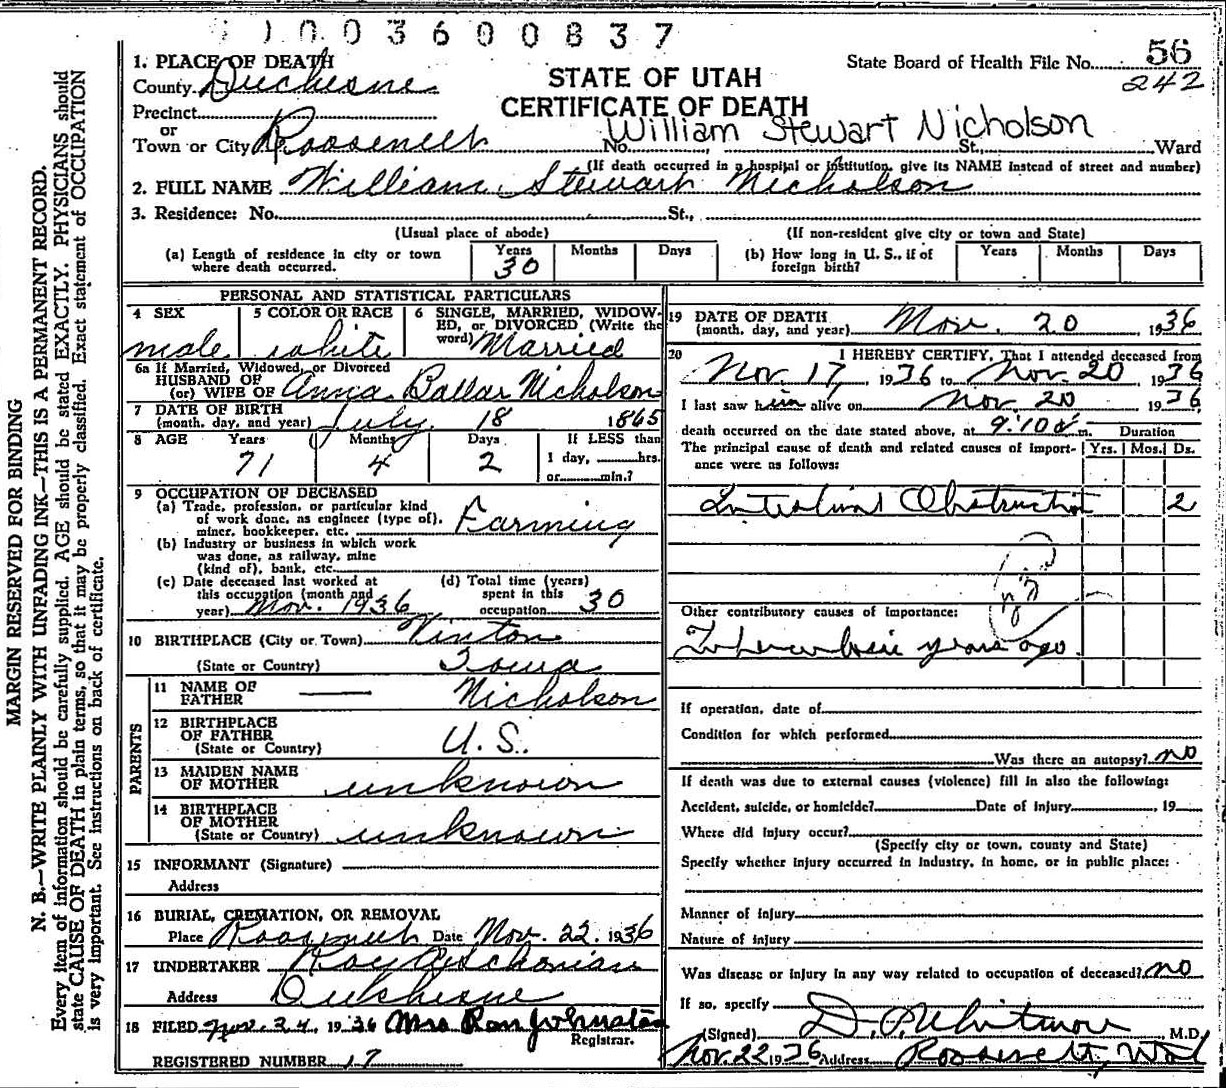 1003600837
1. PLACE OF DEATH
County Duchesne
Precinct
or
Town or City Roosevelt
STATE OF UTAH
CERTIFICATE OF DEATH
State Board of Health File No. 56
242
No. William Stewart Nicholson St., Ward
(If death occurred in a hospital or institution, give its NAME instead of street and number)
2. FULL NAME William Stewart Nicholson
3. Residence: No. St.,
(Usual place of abode) (If non-resident give city or town and State)
(a) Length of residence in city or town where death occurred. Years 30 Months Days
(b) How long in U. S., if of foreign birth? Years Months Days
PERSONAL AND STATISTICAL PARTICULARS
4 SEX male
5 COLOR OR RACE white
6 SINGLE, MARRIED, WIDOW-
ED, or DIVORCED, (Write the
word) Married
6a If Married, Widowed, or Divorced
HUSBAND OF
(or) WIFE OF Anna Ballar Nicholson
7 DATE OF BIRTH
(month, day, and year) July 18 1865
8 AGE Years 71 Months 4 Days 2
If LESS than
1 day, hrs.
or min.?
9 OCCUPATION OF DECEASED
(a) Trade, profession, or particular kind
of work done, as engineer (type of),
miner, bookkeeper, etc. Farming
(b) Industry or business in which work
was done, as railway, mine
(kind of), bank, etc.
(c) Date deceased last worked at
this occupation (month and
year) Nov. 1936
(d) Total time (years)
spent in this
occupation 30
10 BIRTHPLACE (City or Town) Vinton
(State or Country) Iowa
PARENTS
11 NAME OF
FATHER Nicholson
12 BIRTHPLACE
OF FATHER
(State or Country) U. S.
13 MAIDEN NAME
OF MOTHER unknown
14 BIRTHPLACE
OF MOTHER
(State or Country) unknown
15 INFORMANT (Signature)
Address
16 BURIAL, CREMATION, OR REMOVAL
Place Roosevelt Date Nov. 22, 1936
17 UNDERTAKER Roy
Address Duchesne
18 FILED Nov. 24, 1936 Mrs Ron Johnston
Registrar.
REGISTERED NUMBER 17
19 DATE OF DEATH
(month, day, and year) Nov. 20, 1936
20 I HEREBY CERTIFY, That I attended deceased from
Nov. 17, 1936 to Nov. 20, 1936
I last saw him alive on Nov 20, 1936
death occurred on the date stated above, at 9:10 a m. Duration
The principal cause of death and related causes of import-
ance were as follows: Yrs. Mos. Ds.
Intestinal Obstruction 2
Other contributory causes of importance:
Tuberculosis years ago.
If operation, date of
Condition for which performed
Was there an autopsy? no
If death was due to external causes (violence) fill in also the following:
Accident, suicide, or homicide? Date of injury , 19
Where did injury occur?
(Specify city or town, county and State)
Specify whether injury occurred in industry, in home, or in public place:
Manner of injury
Nature of injury
Was disease or injury in any way related to occupation of deceased? no
If so, specify
(Signed) D. P. Whitmore, M.D.
Nov. 22 1936 Address Roosevelt,
MARGIN RESERVED FOR BINDING
N. B.—WRITE PLAINLY WITH UNFADING INK—THIS IS A PERMANENT RECORD.
Every item of information should be carefully supplied. AGE should be stated EXACTLY. PHYSICIANS should
state CAUSE OF DEATH in plain terms, so that it may be properly classified. Exact statement of OCCUPATION
is very important. See instructions on back of certificate.